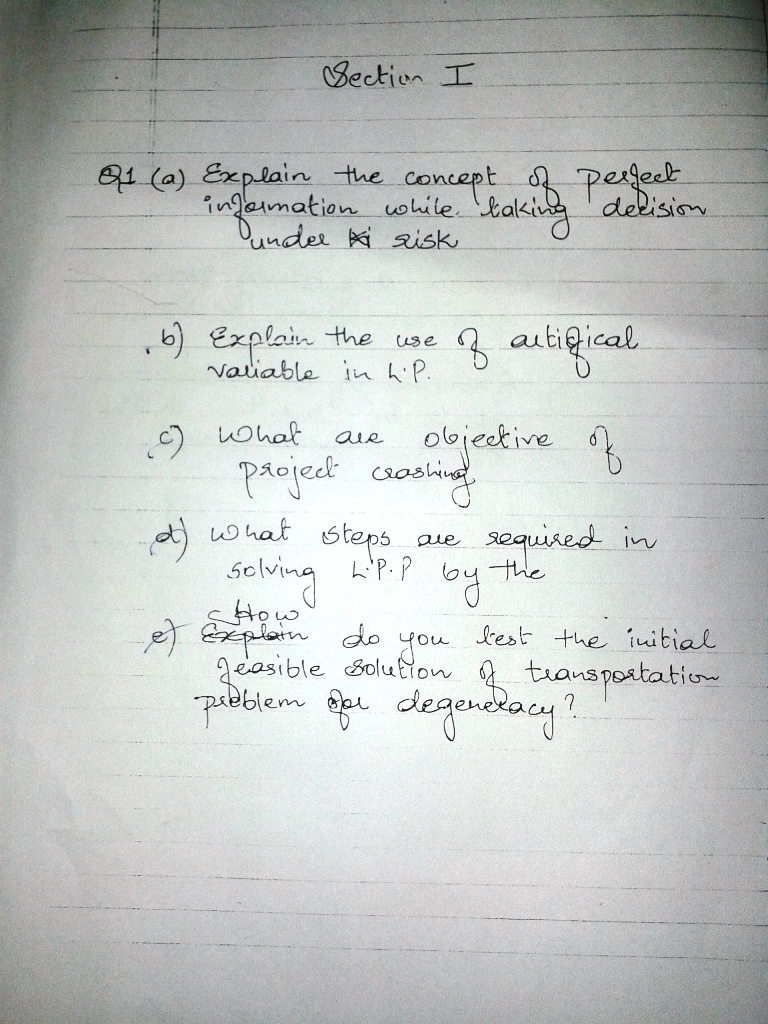 Section I
Q1 (a) Explain the concept of perfect
information while taking decision
under risk
b) Explain the use of artifical
variable in L.P.
c) What are objective of
project crashing
d) What steps are required in
solving L.P.P by the
How
e) Explain do you test the initial
feasible solution of transportation
problem for degeneracy?